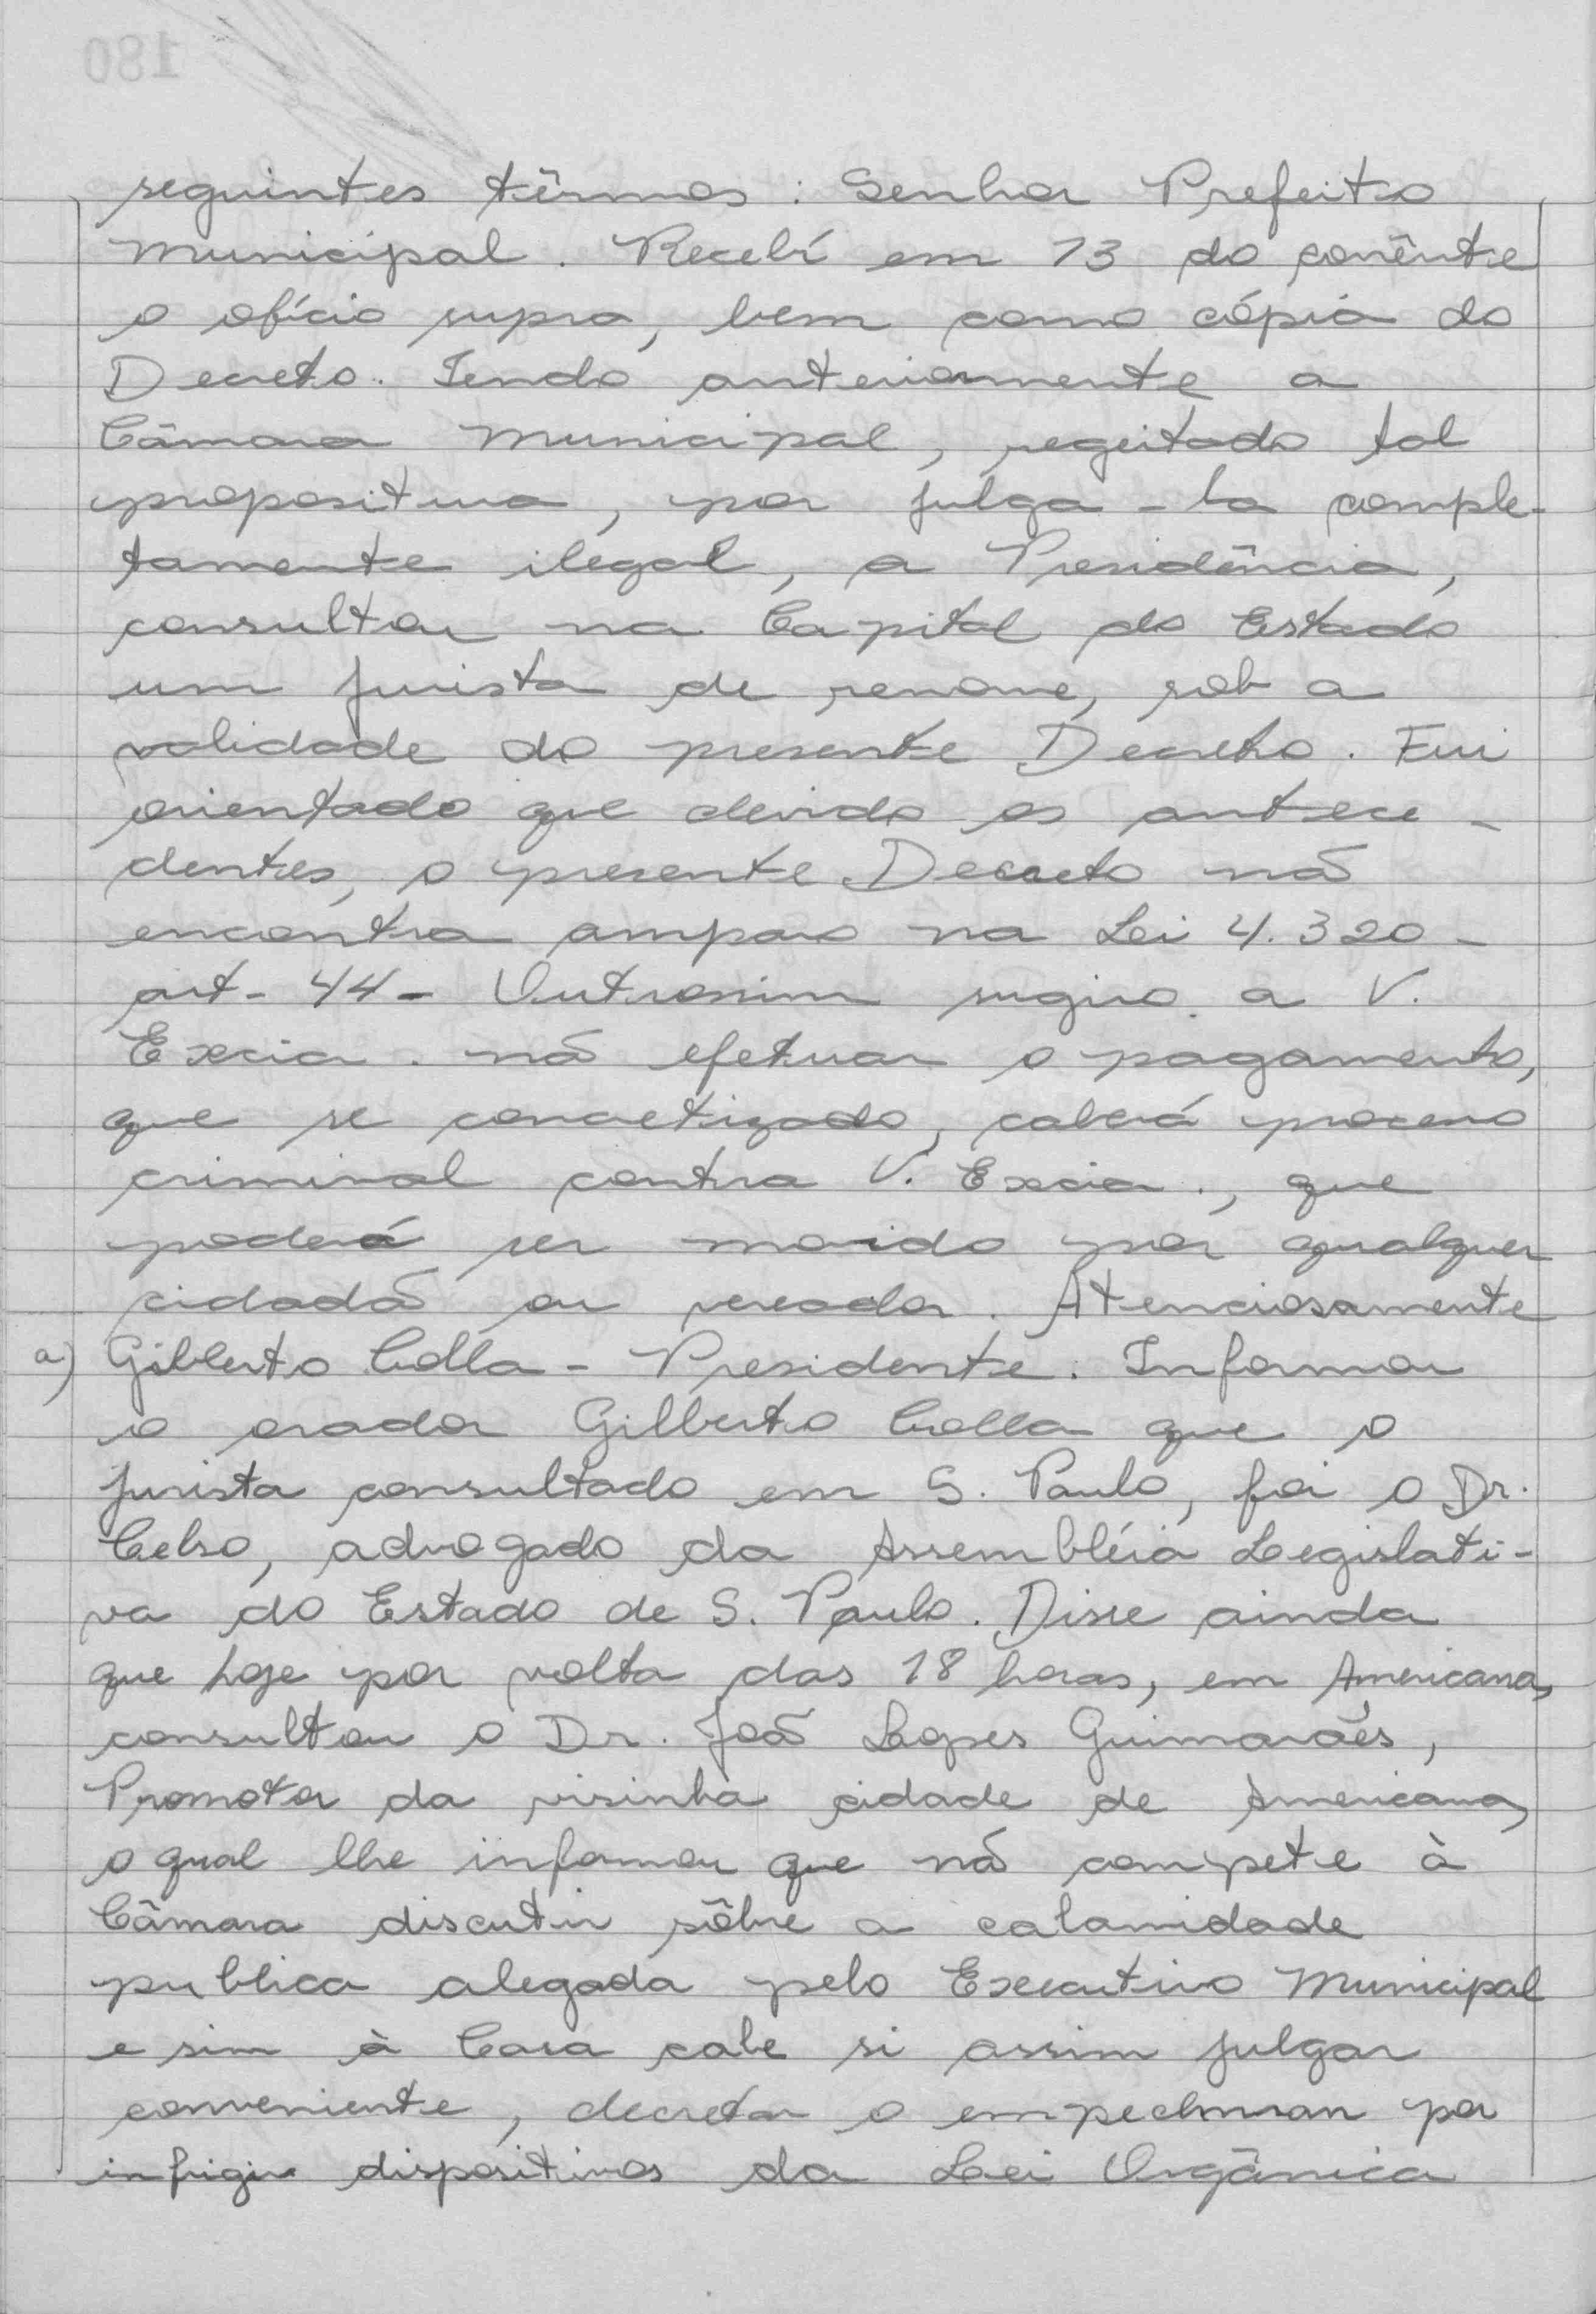 seguintes têrmos: Senhor Prefeito
Municipal. Recebí em 13 do corrênte
o ofício supra, bem como cópia do
Decreto. Tendo anteriormente a
Câmara Municipal, regeitado tal
propositura, por julga-la comple-
tamente ilegal, a Presidência,
consultou na Capital do Estado
um jurista de renome, sob a
validade do presente Decreto. Fui
orientado que devido os antece-
dentes, o presente Decreto nã
encontra amparo na Lei 4.320-
art- 44- Outrossim sugiro a V.
Excia. nã efetuar o pagamento,
que se concretizado, caberá processo
criminal contra V. Excia., que
poderá ser movido por qualquer
cidadã ou vereador. Atenciosamente
a) Gilberto Colla - Presidente. Informou
o orador Gilberto Colla que o
jurista consultado em S. Paulo, foi o Dr.
Celso, advogado da Assembléia Legislati-
va do Estado de S. Paulo. Disse ainda
que hoje por volta das 18 horas, em Americana,
consultou o Dr. Joã Lopes Guimarães,
Promotor da visinha cidade de Americana,
o qual lhe informou que nã compete à
Câmara discutir sôbre a calamidade
publica alegada pelo Executivo Municipal
e sim à Casa cabe si assim julgar
conveniente, decretar o empechman por
infrigir dispositivos da Lei Orgânica